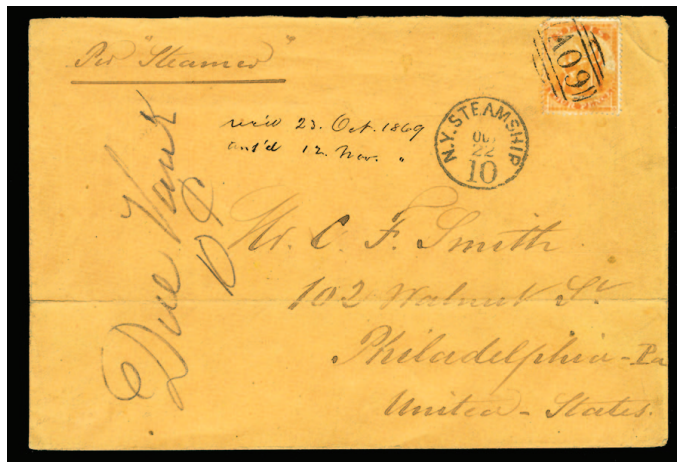 Per "Steamer"
A09
rec'd 23. Oct. 1869
ans'd 12. Nov. "
N.Y. STEAMSHIP
OCT
22
10
Mr. C. F. Smith
102 Walnut St
Philadelphia - Pa
United - States.
Due
10